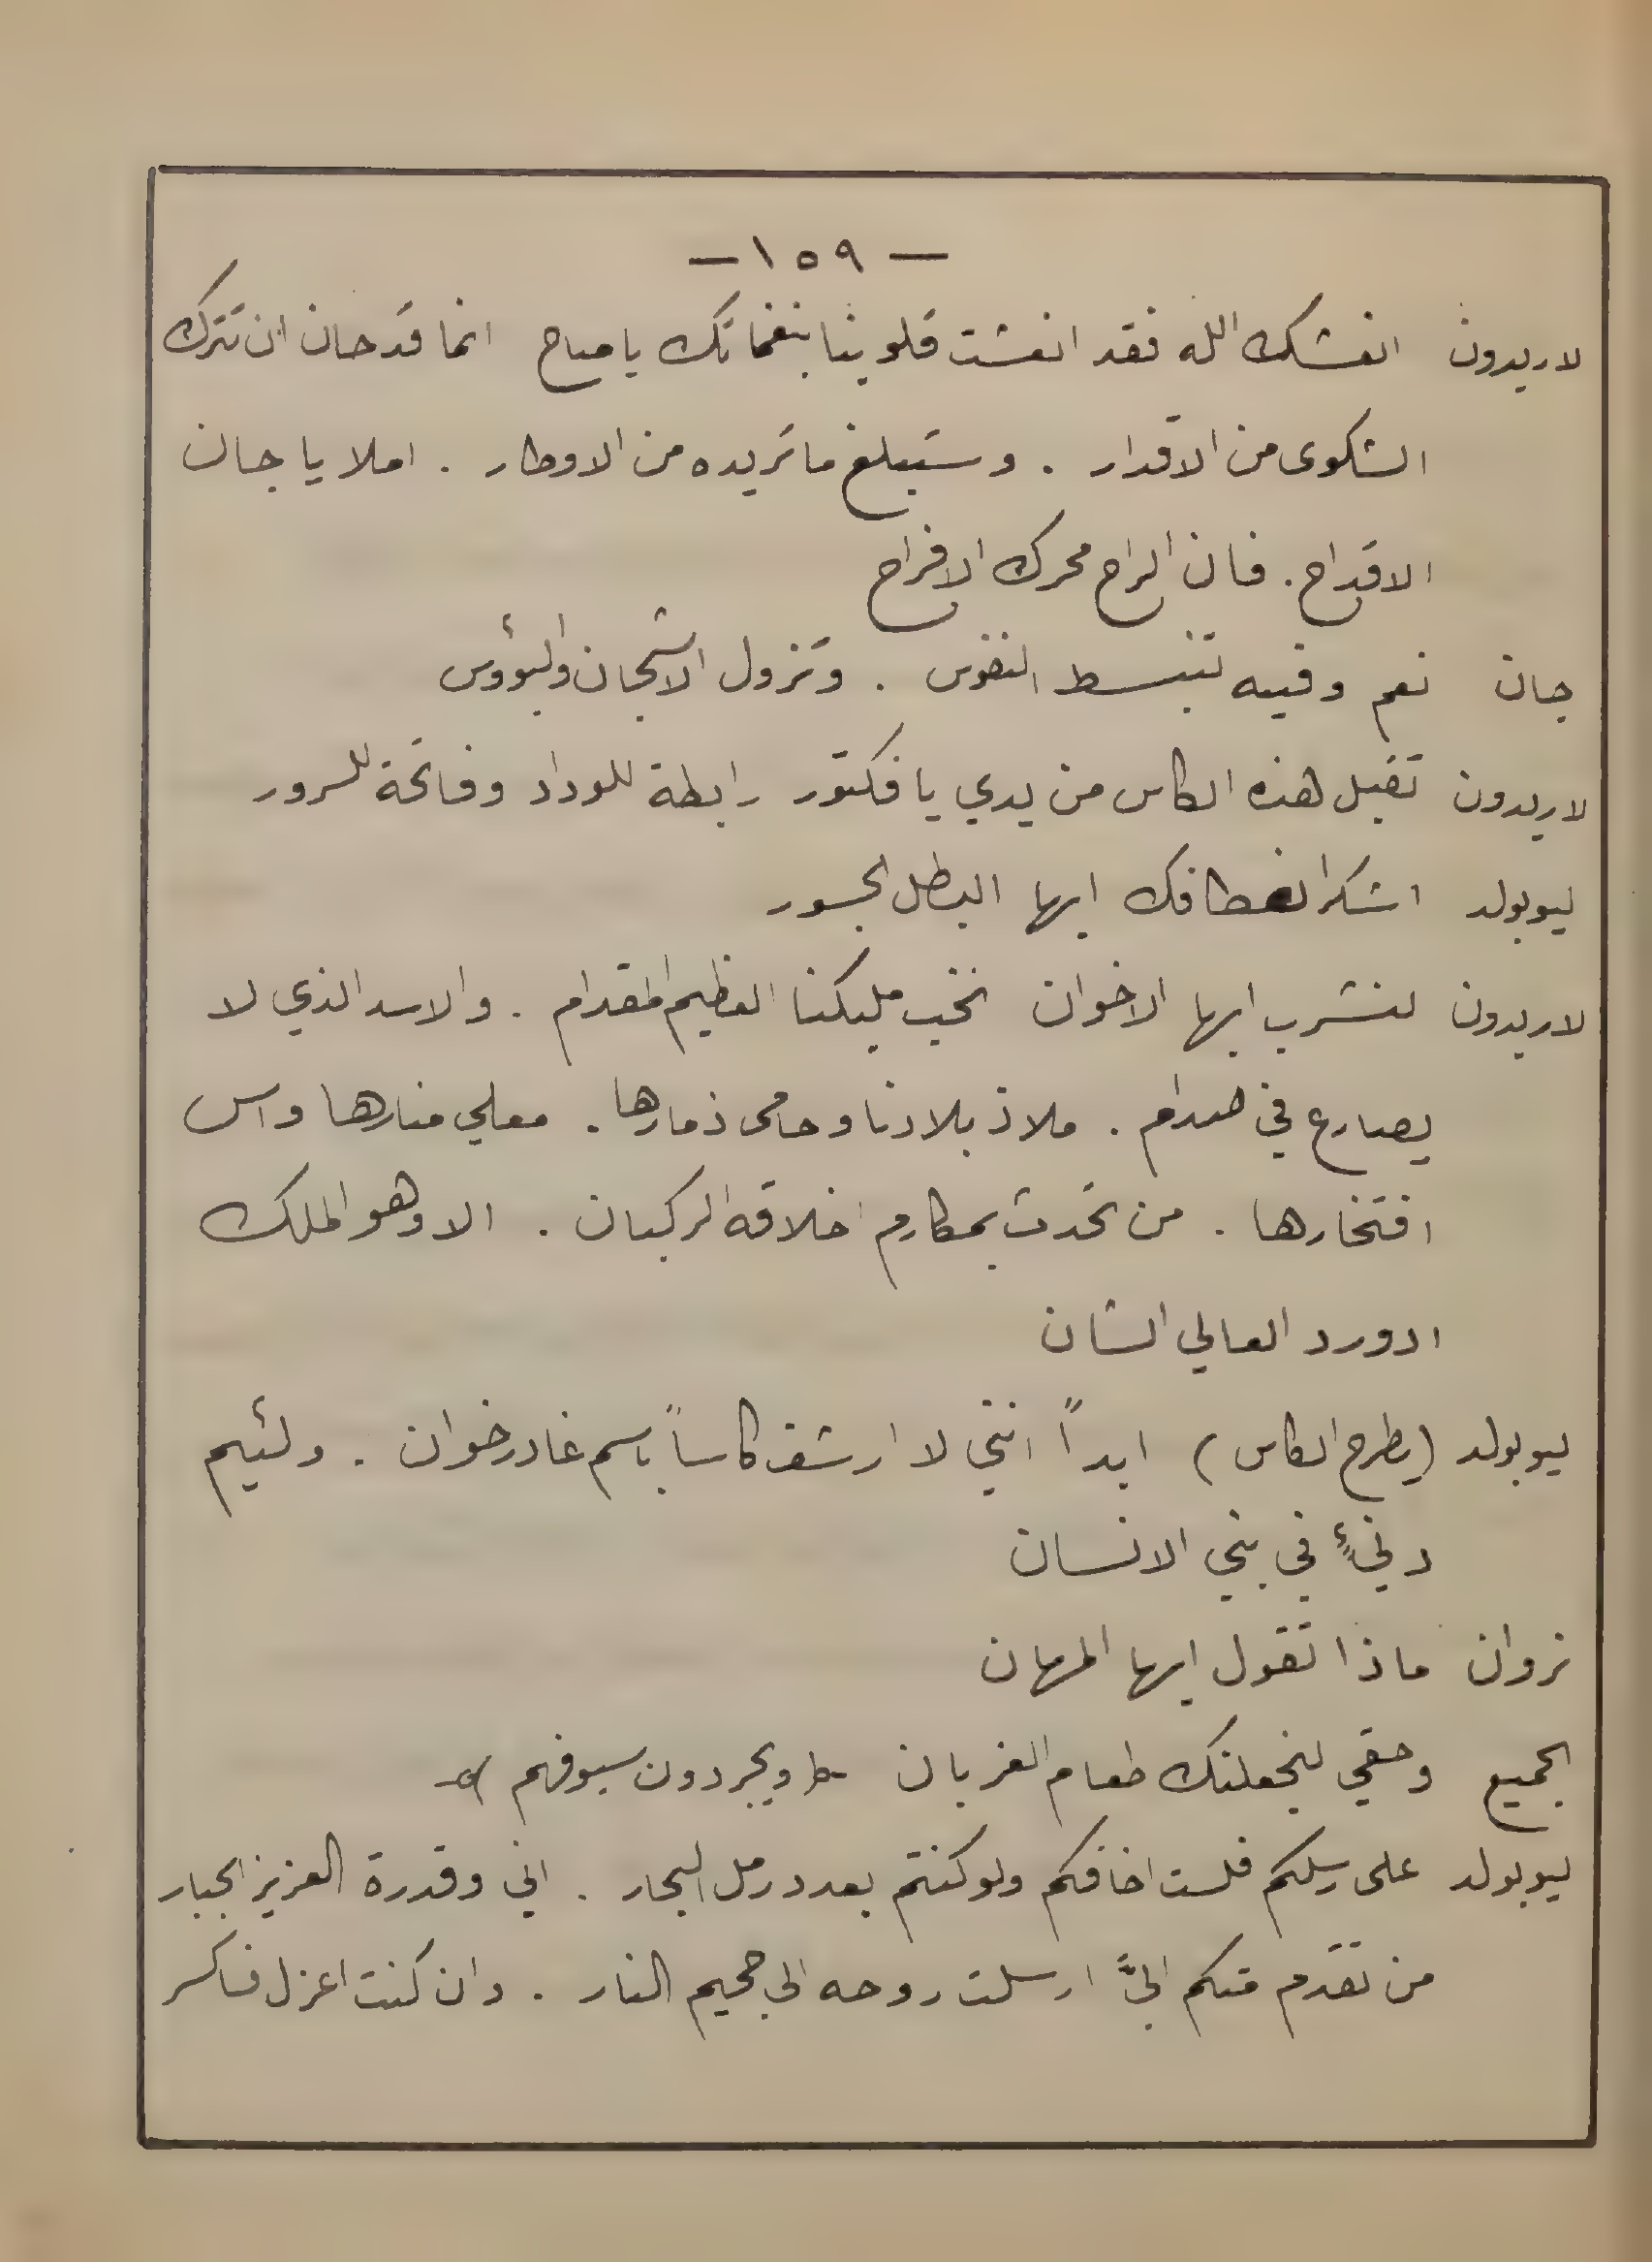 — ١٥٩ —
لاريدون انعشك الله فقد انعشت قلوبنا بنغماتك يا صاح انما قد حان ان تترك
الشكوى من الاقدار . وستبلغ ما تريده من الاوطار . املا يا جان
الاقداح . فان الراح محرك الافراح
جان نعم وفيه تنبسط النفوس . وتزول الاشجان والبؤوس
لاريدون تقبل هذه الكاس من يدي يا فكتور رابطة للوداد وفاتحة للسرور
ليوبولد اشكر انعطافك ايها البطل الجسور
لاريدون لنشرب ايها الاخوان نخب مليكنا العظيم المقدام . والاسد الذي لا
يصارع في صدام . ملاذ بلادنا وحامى ذمارها . معلي منارها واس
افتخارها . من تحدث بمكارم اخلاقه الركبان . الا وهو الملك
ادورد العالي الشان
ليوبولد (يطرح الكاس) ابداً انني لا ارشف كاساً باسم غادر خوان . ولئيم
دنيءٍ في بني الانسان
نروان ماذا تقول ايها المهان
الجميع وحقي لنجعلنك طعام الغربان (ويجردون سيوفهم)
ليوبولد على رسلكم فلست اخافكم ولو كنتم بعدد رمل البحار . اني وقدرة العزيز الجبار
من تقدم منكم اليَّ ارسلت روحه الى جحيم النار . وان كنت اعزل فاكسر